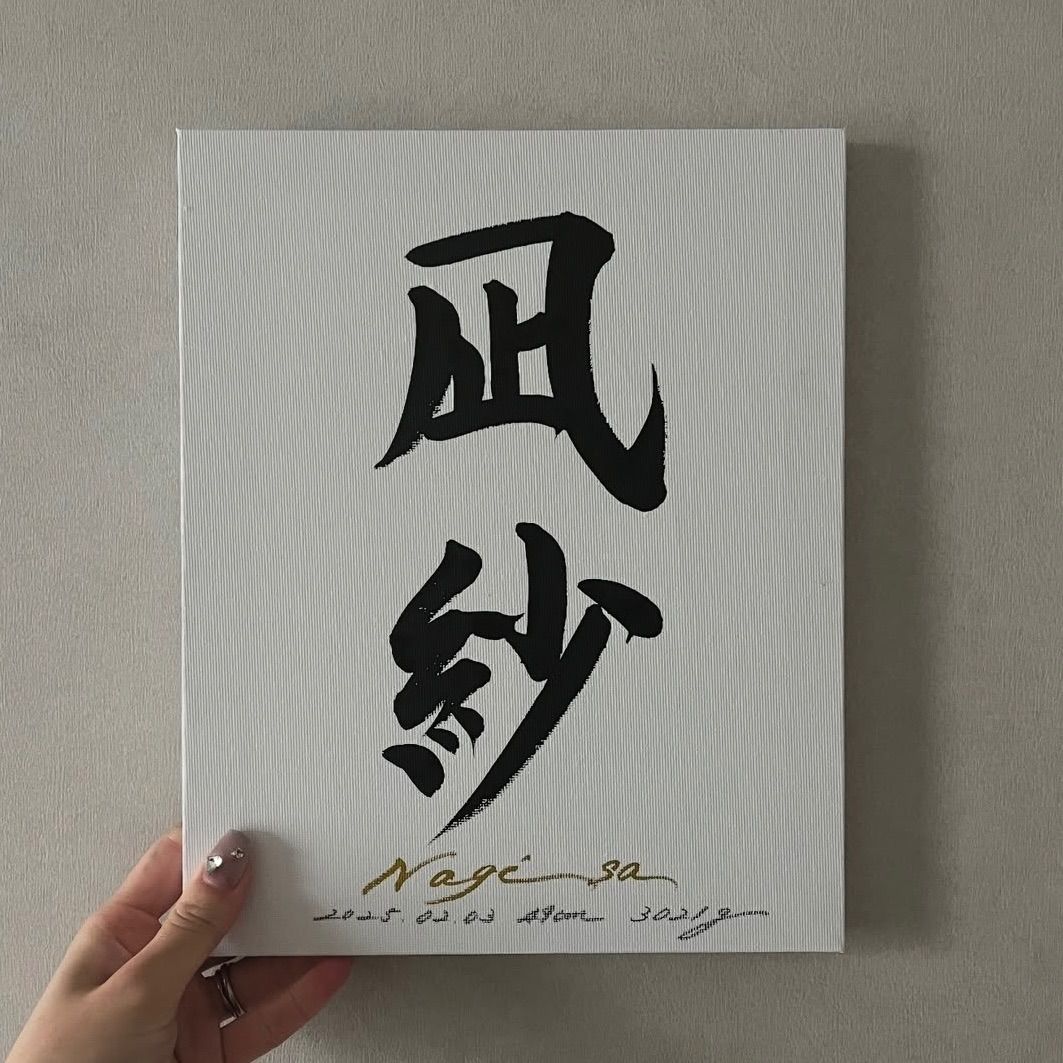 凪紗
Nagi sa
2025.02.03 49cm 3021g